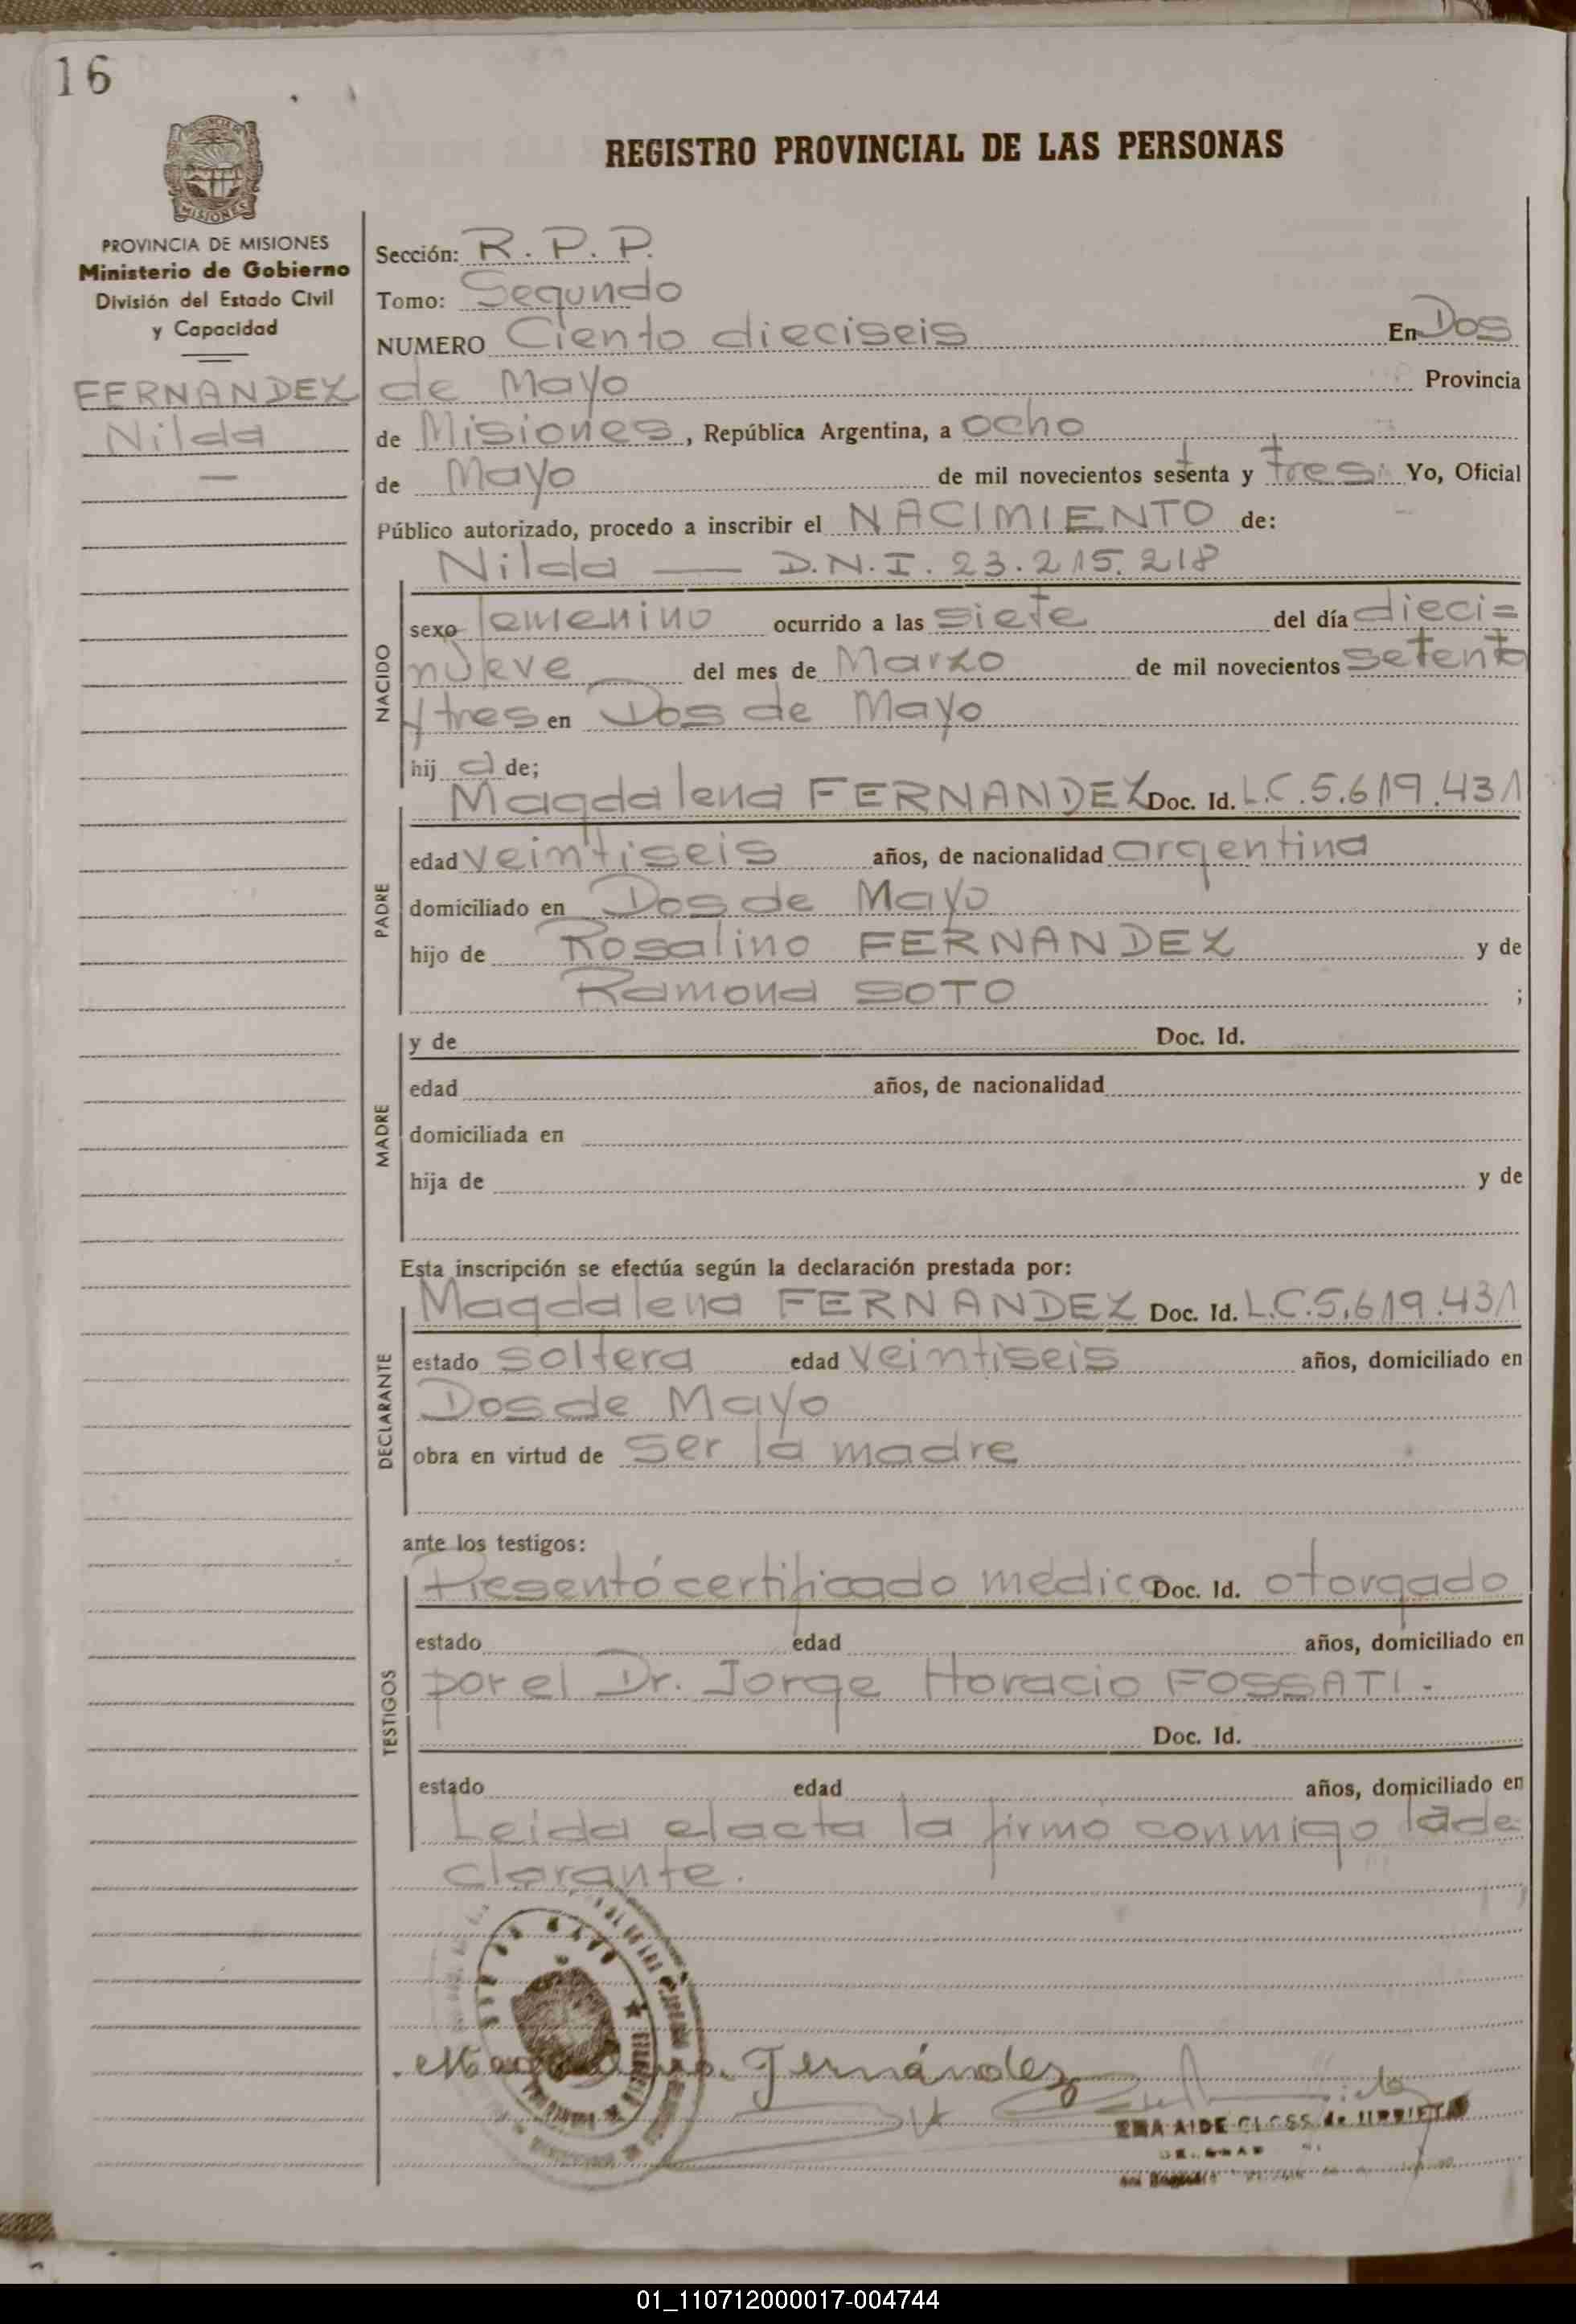 16
REGISTRO PROVINCIAL DE LAS PERSONAS
PROVINCIA DE MISIONES
Ministerio de Gobierno
División del Estado Civil
y Capacidad
FERNANDEZ
Nilda
—
Sección: R.P.P.
Tomo: Segundo
NUMERO Ciento dieciseis En Dos
de Mayo Provincia
de Misiones, República Argentina, a ocho
de Mayo de mil novecientos setenta y tres Yo, Oficial
Público autorizado, procedo a inscribir el NACIMIENTO de:
Nilda — D.N.I. 23.215.218
NACIDO
sexo femenino ocurrido a las siete del día dieci=
nueve del mes de Marzo de mil novecientos setenta
y tres en Dos de Mayo
hij a de;
PADRE
Magdalena FERNANDEZ Doc. Id. L.C.5.619.431
edad veintiseis años, de nacionalidad argentina
domiciliado en Dos de Mayo
hijo de Rosalino FERNANDEZ y de
Ramona SOTO ;
MADRE
y de Doc. Id.
edad años, de nacionalidad
domiciliada en
hija de y de
Esta inscripción se efectúa según la declaración prestada por:
DECLARANTE
Magdalena FERNANDEZ Doc. Id. L.C.5.619.431
estado soltera edad veintiseis años, domiciliado en
Dos de Mayo
obra en virtud de ser la madre
ante los testigos:
TESTIGOS
Presentó certificado médico Doc. Id. otorgado
estado edad años, domiciliado en
por el Dr. Jorge Horacio FOSSATI.
Doc. Id.
estado edad años, domiciliado en
Leida el acta la firmó conmigo la de
clarante.
Fernández
AIDE de URRIETA
01_110712000017-004744